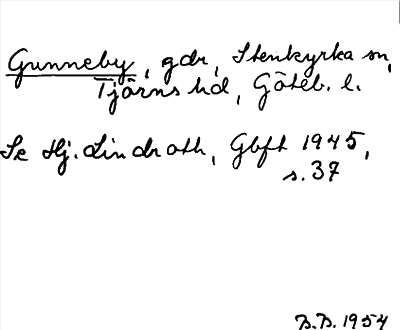 Gunneby, gdr, Stenkyrka sn,
Tjörns hd, Göteb. l.
Se Hj. Lindroth, Gbft 1945,
s. 37
B.B. 1954